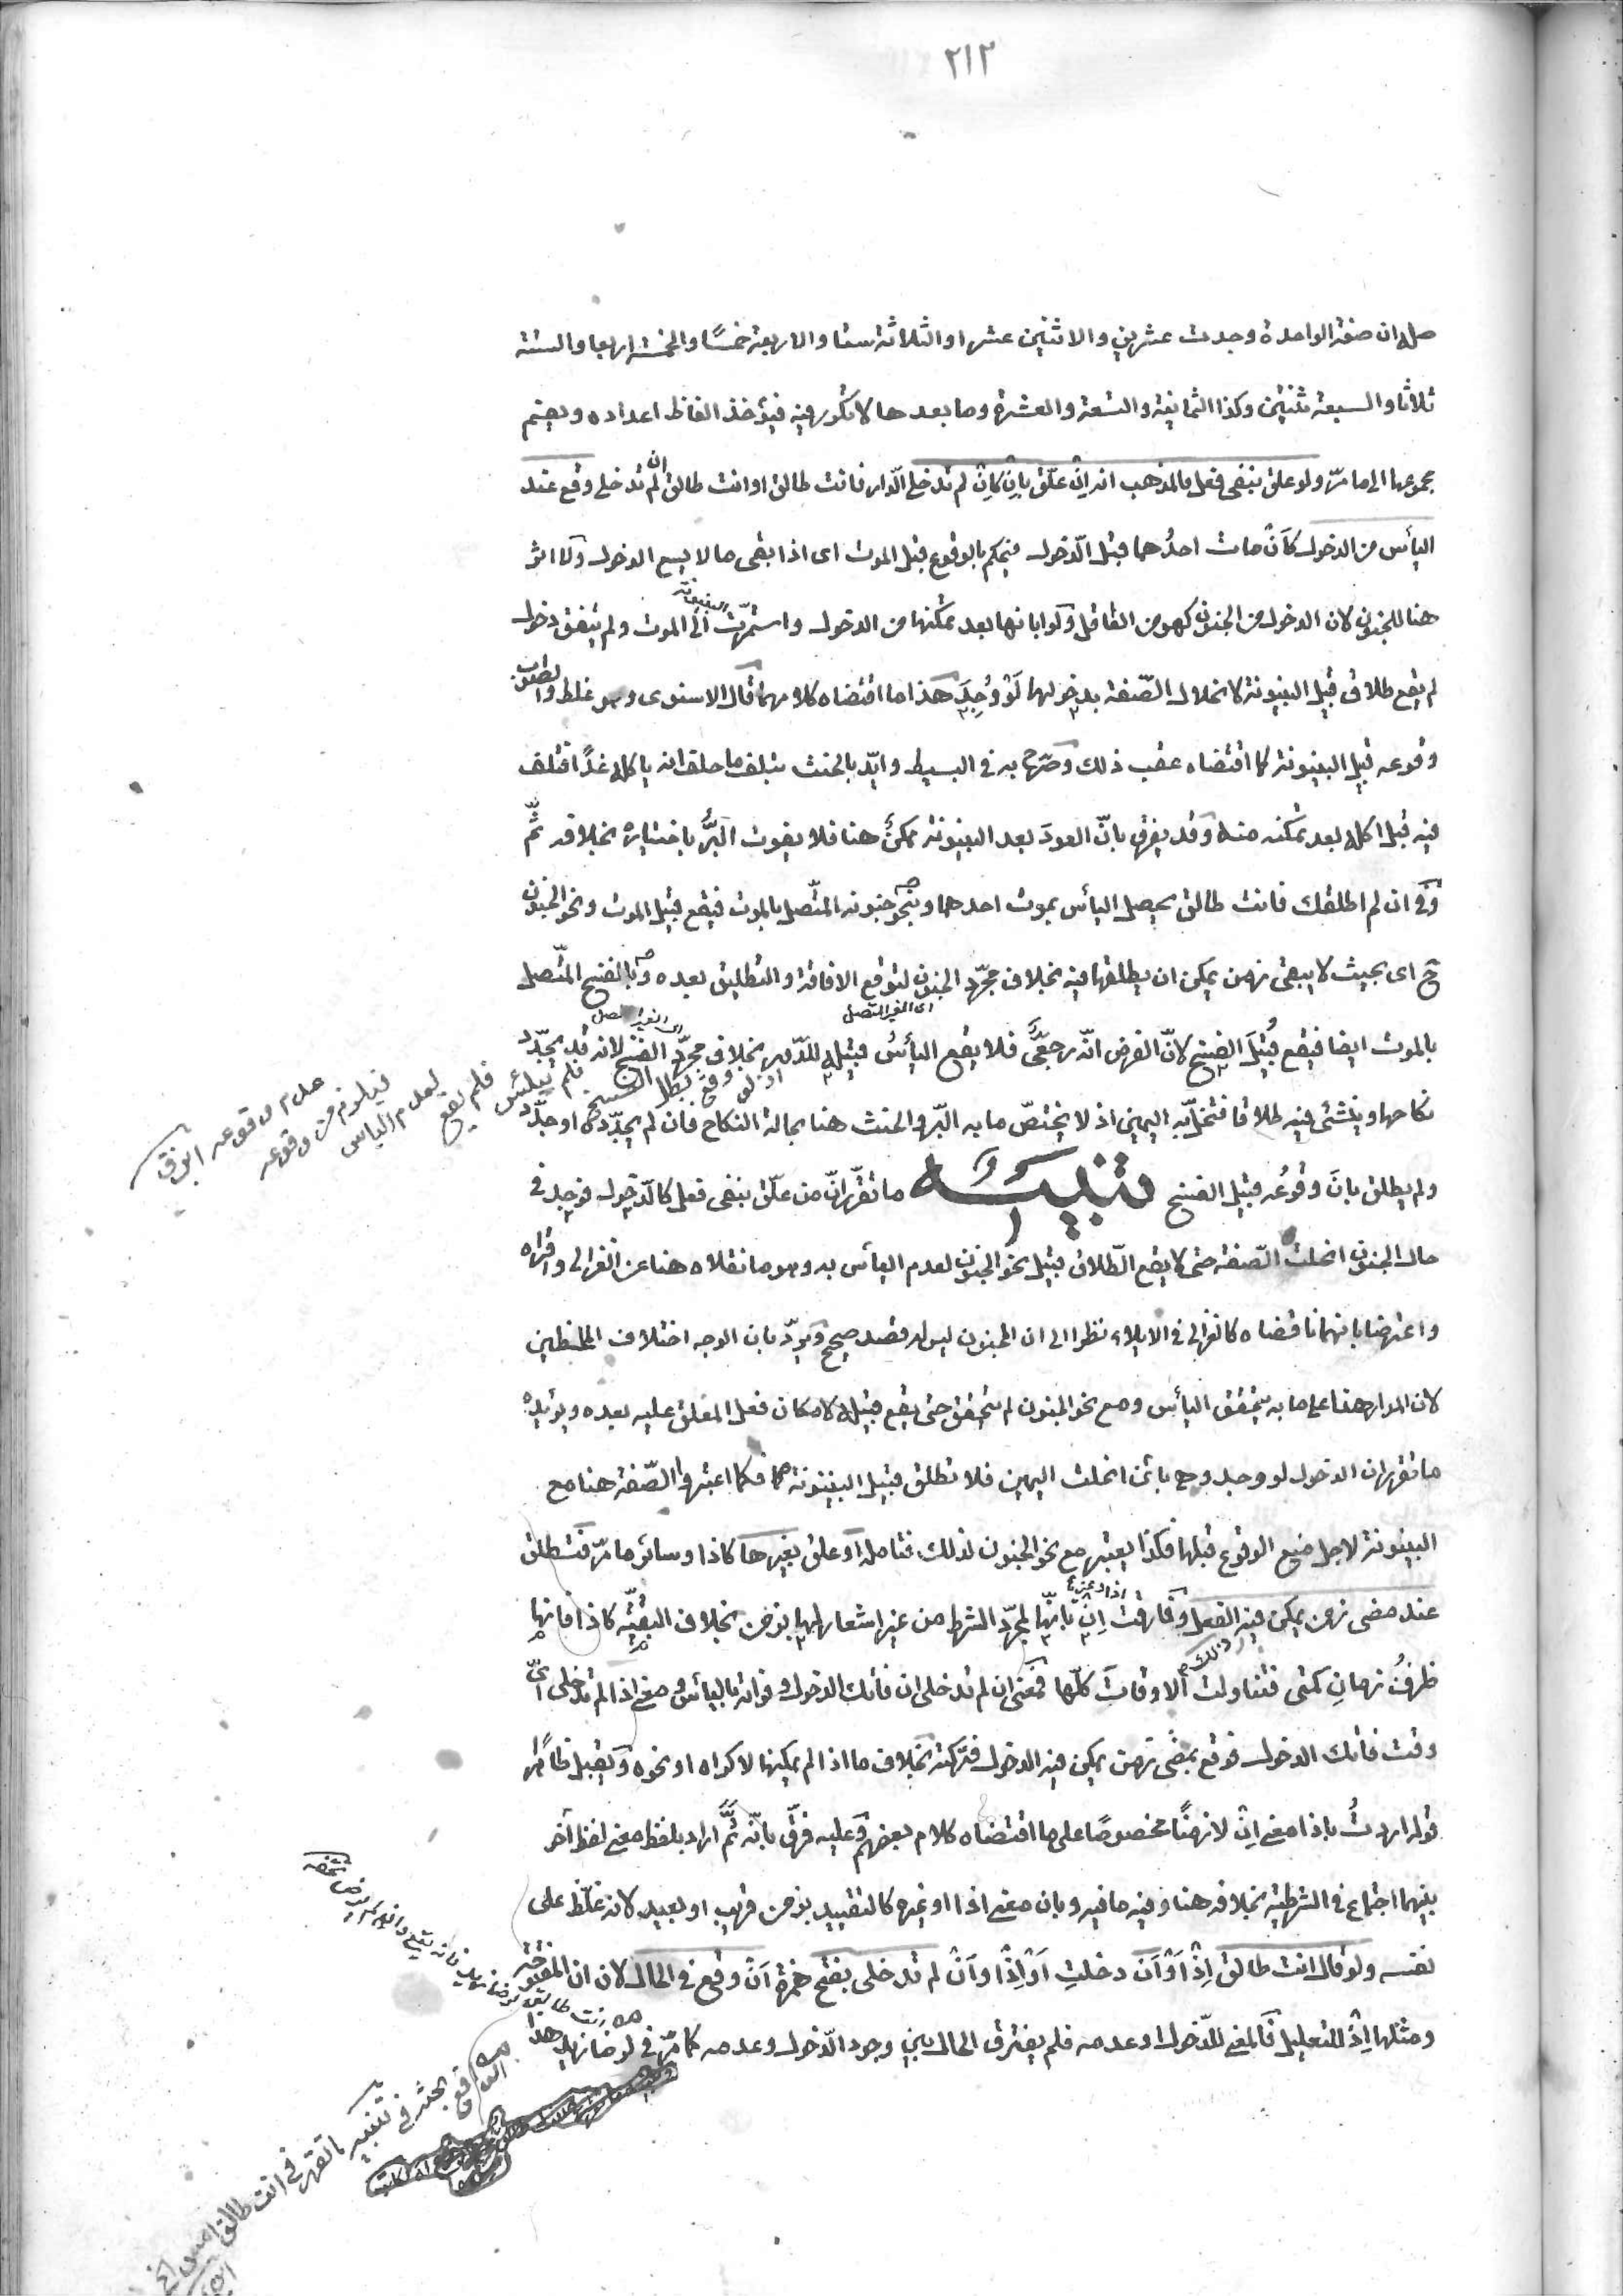 ٢١٢
صله ان صفة الواحدة وجدت عشرين والاثنين عشرا والثلاثة ستا والاربعة خمسًا والخمسة اربعا والستة
ثلاثا والسبعة ثنتين وكذا الثمانية والتسعة والعشرة وما بعدها لا تكرر فيه فيؤخذ الفاظ اعداده ويضم
مجموعها الى ما مرّ ولو علق بنفي فعل فالمذهب انه اِن علّق بإن كإن لم تدخلي الدار فانت طالق او انت طالق ان لم تدخلي وقع عند
اليأس من الدخول كأن مات احدُهما قبل الدخول فيحكم بالوقوع قبل الموت اى اذا بقى ما لا يسع الدخول ولا اثر
هنا للجنون لان الدخول من الجنون كهو من العاقل ولو ابانها بعد تمكنها من الدخول واستمرّت البينونة الى الموت ولم يتفق دخول
لم يقع طلاق قبيل البينونة لانحلال الصّفة بدخولها لَوْ وُجِدَ هذا ما اقتضاه كلامهما قال الاسنوى وهو غلط والصواب
وقوعه قبيل البينونة كما اقتضاه عقب ذلك وصرّحا به في البسيط وايّد بالحنث بتلف ما حلف انه ياكله غدًا فتلف
فيه قبل اكله بعد تمكنه منه وقد يفرق بانّ العودَ بعد البينونة ممكنٌ هنا فلا يفوت البرُّ باختياره بخلافه ثَمَّ
وفى ان لم اطلقك فانت طالق يحصل اليأس بموت احدهما وبنحو جنونه المتّصل بالموت فيقع قبيل الموت ونحو الجنون
ح اى بحيث لا يبقى زمن يمكن ان يطلقها فيه بخلاف مجرّد الجنون لتوقع الافاقة والتطليق بعده وبالفسخ المتّصل
بالموت ايضا فيقع قُبَيلَ الفسخ لانّ الفرض انّه رجعىٌّ فلا يقع اليأسُ قبيله للدّور بخلاف مجرّد الفسخ لانه قد يجدّد
اى الغير المتصل
نكاحها وينشئ فيه طلاقا فتنحلّ به اليمين اذ لا يختصّ ما به البرّ والحنث هنا بحالة النكاح فان لم يجدّده او جدّد
ولم يطلق بانَ وقوعُه قبيل الفسخ تنبيه ما تقرّر انّ من علّق بنفى فعل كالدّخول فوجد في
حال الجنون انحلت الصّفة حتى لا يقع الطّلاق قبيل نحو الجنون لعدم اليأس به وهو ما نقلاه هنا عن الغزالى واقرّاه
واعترضا بانهما ناقضاه كالغزالى في الايلاء نظرا الى ان المجنون ليس له قصد صحيح ويردّ بان الوجه اختلاف الملحظين
لان المدار هنا على ما به يتحقق اليأس ومع نحو الجنون لم يتحقق حتى يقع قبيله لامكان فعل المعلق عليه بعده ويؤيده
ما تقرر ان الدخول لو وجد وهى بائن انحلت اليمين فلا تطلق قبيل البينونة فكما اعتبروا الصّفة هنا مع
البينونة لاجل منع الوقوع قبلها فكذا يعتبر مع نحو الجنون لذلك فتامله او علق بغيرها كاذا وسائر ما مرّ فتطلق
عند مضى زمن يمكن فيه الفعل وفارقت اِن بانّها لمجرّد الشرط من غير اشعار لها بزمن بخلاف البقيّة كاذا فانها
ظرفُ زمانٍ كمتى فتناولت الاوقات كلّها فمعنى ان لم تدخلى ان فاتك الدخول وفواته باليأس ومعنى اذا لم تدخلى اىّ
وقت فاتك الدخول فوقع بمضى زمن يمكن فيه الدخول فتركته بخلاف ما اذا لم يمكنها لاكراه او نحوه ويقبل ظاهرًا
قوله اردتُ باذا معنى اِن لا زمنًا مخصوصًا على ما اقتضاه كلام بعضهم وعليه فرّق بانّه ثَمَّ اراد بلفظ معنى لفظ آخر
بينهما اجتماع في الشرطية بخلافه هنا وفيه ما فيه وبان معنى اذا او غيره كالتقييد بزمن قريب او بعيد لانه غلّظ على
نفسه ولو قال انت طالق اِذْ اَوْ اَن دخلتِ اَوْ اِذْ اَوْ اَن لم تدخلى بفتح همزة اَن وقع في الحال لان ان المفتوحة
ومثلها اِذْ للتعليل فالمعنى للدّخول او عدمه فلم يفترق الحال بين وجود الدّخول وعدمه كما مرّ في لرضا زيد هذا
فلم يقع لعدم اليأس
فيلزم من وقوعه عدم وقوعه